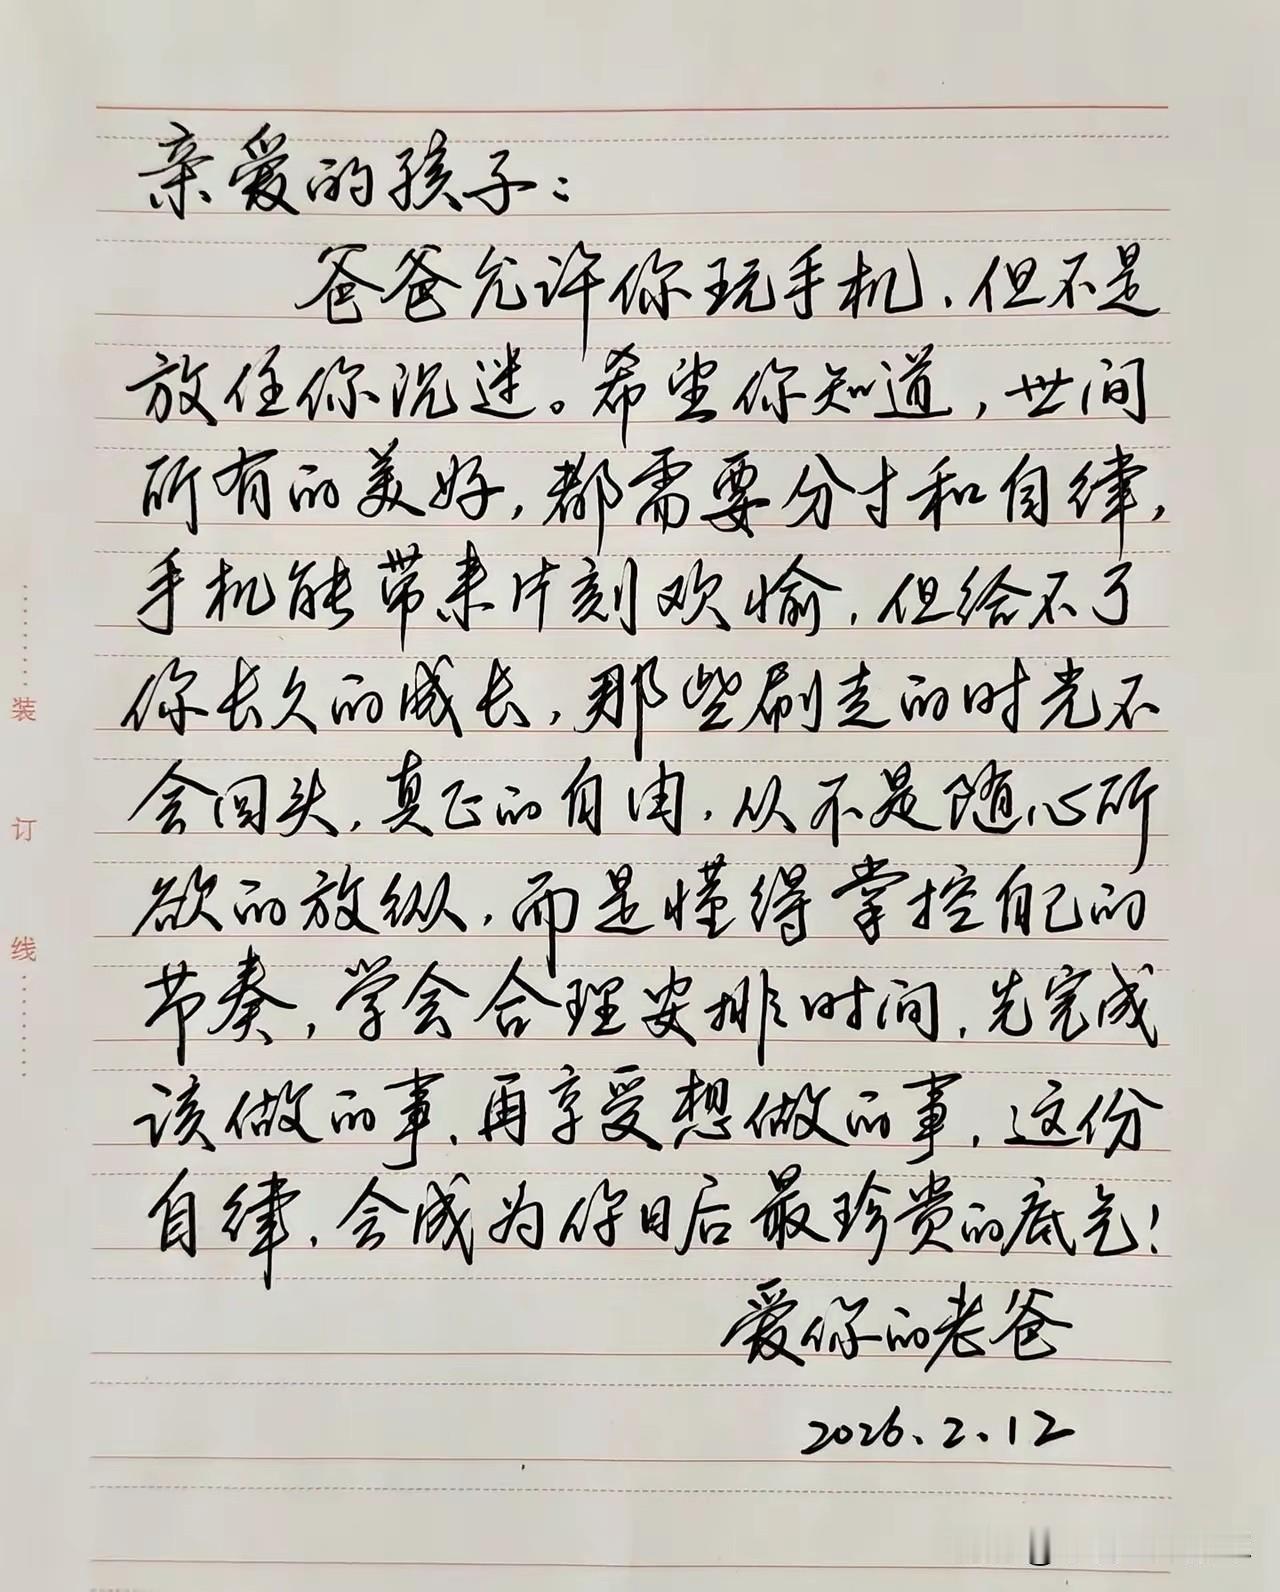 亲爱的孩子：
爸爸允许你玩手机、但不是
放任你沉迷。希望你知道，世间
所有的美好，都需要分寸和自律，
手机能带来片刻欢愉，但给不了
你长久的成长，那些刷走的时光不
会回头，真正的自由，从不是随心所
欲的放纵，而是懂得掌控自己的
节奏，学会合理安排时间，先完成
该做的事、再享受想做的事，这份
自律，会成为你日后最珍贵的底气！
爱你的老爸
2026.2.12
装
订
线